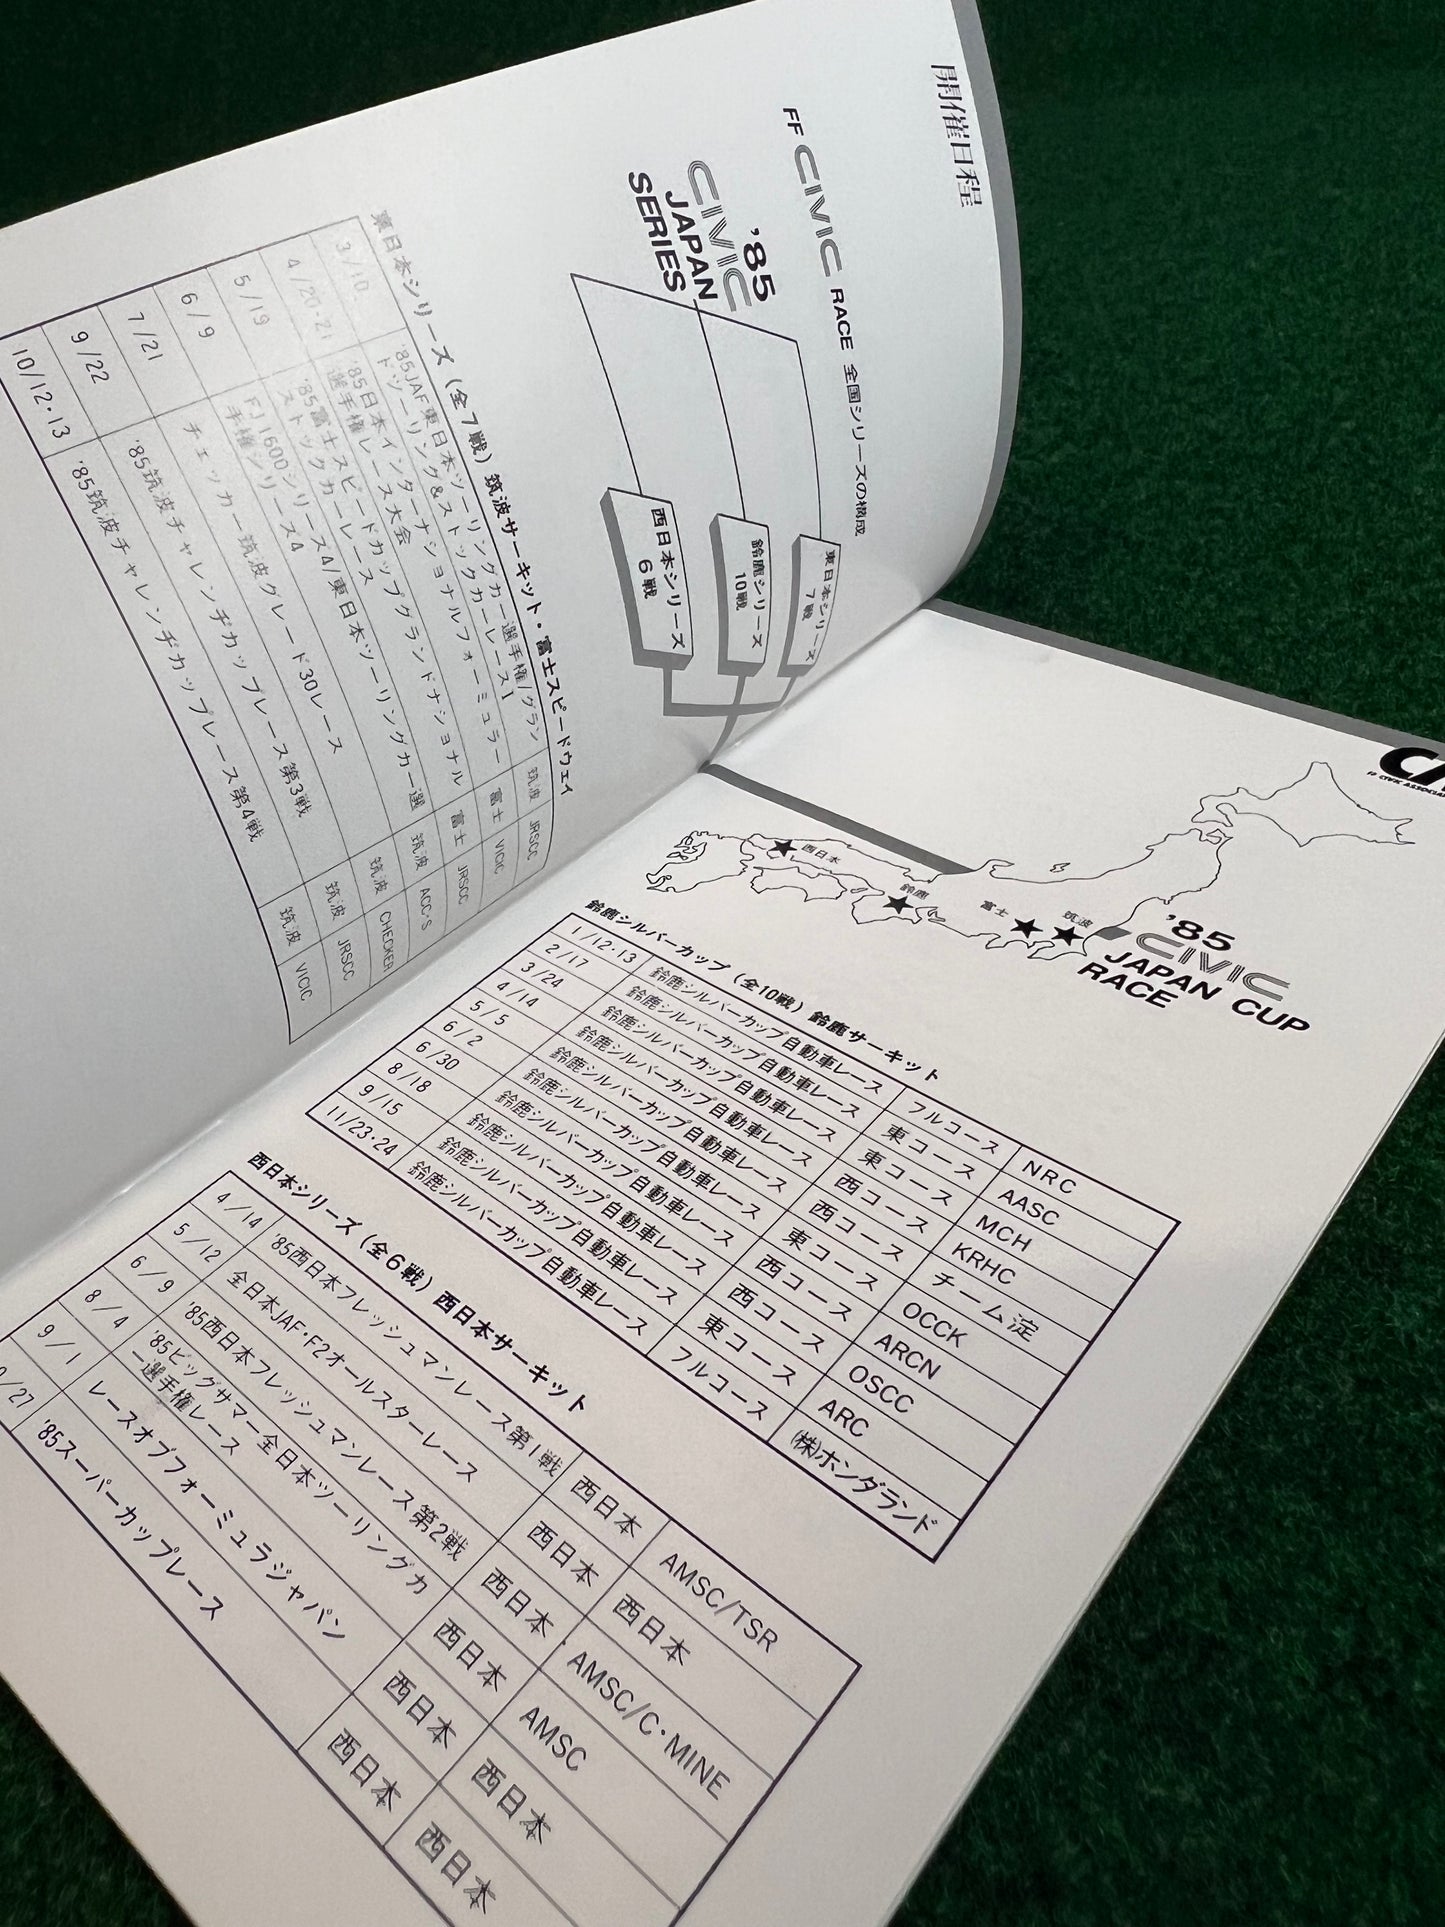 開催日程
FF CIVIC RACE 全国シリーズの構成
'85
CIVIC
JAPAN
SERIES
東日本シリーズ
7戦
鈴鹿シリーズ
10戦
西日本シリーズ
6戦
東日本シリーズ（全7戦）筑波サーキット・富士スピードウェイ
3/10 '85JAF東日本ツーリングカー選手権/グラン
ドツーリング&ストックカーレースI 筑波 JRSCC
4/20・21 '85日本インターナショナルフォーミュラー
選手権レース大会 富士 VICIC
5/19 '85富士スピードカップグランドナショナル
ストックカーレース 富士 JRSCC
6/9 FJ1600シリーズ4/東日本ツーリングカー選
手権シリーズ4 筑波 ACC・S
7/21 チェッカー筑波グレード30レース 筑波 CHECKER
9/22 '85筑波チャレンヂカップレース第3戦 筑波 JRSCC
10/12・13 '85筑波チャレンヂカップレース第4戦 筑波 VICIC
FF CIVIC
西日本
鈴鹿
富士
筑波
'85
CIVIC
JAPAN CUP
RACE
鈴鹿シルバーカップ（全10戦）鈴鹿サーキット
1/12・13 鈴鹿シルバーカップ自動車レース フルコース NRC
2/17 鈴鹿シルバーカップ自動車レース 東コース AASC
3/24 鈴鹿シルバーカップ自動車レース 東コース MCH
4/14 鈴鹿シルバーカップ自動車レース 西コース KRHC
5/5 鈴鹿シルバーカップ自動車レース 西コース チーム淀
6/2 鈴鹿シルバーカップ自動車レース 東コース OCCK
6/30 鈴鹿シルバーカップ自動車レース 西コース ARCN
8/18 鈴鹿シルバーカップ自動車レース 西コース OSCC
9/15 鈴鹿シルバーカップ自動車レース 東コース ARC
11/23・24 鈴鹿シルバーカップ自動車レース フルコース (株)ホンダランド
西日本シリーズ（全6戦）西日本サーキット
4/14 '85西日本フレッシュマンレース第1戦 西日本 AMSC/TSR
5/12 全日本JAF・F2オールスターレース 西日本 西日本
6/9 '85西日本フレッシュマンレース第2戦 西日本 AMSC/C・MINE
8/4 '85ビッグサマー全日本ツーリングカ
ー選手権レース 西日本 AMSC
9/1 レースオブフォーミュラジャパン 西日本 西日本
/27 '85スーパーカップレース 西日本 西日本